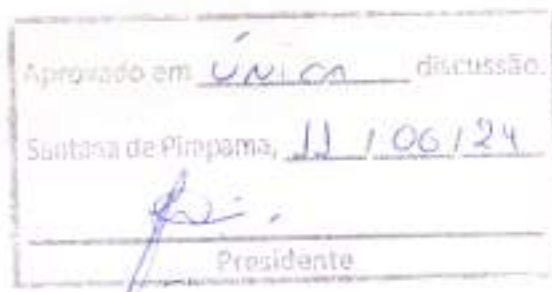 Aprovado em ÚNICA discussão.
Santana de Pimpama, 11 / 06 / 24
Presidente